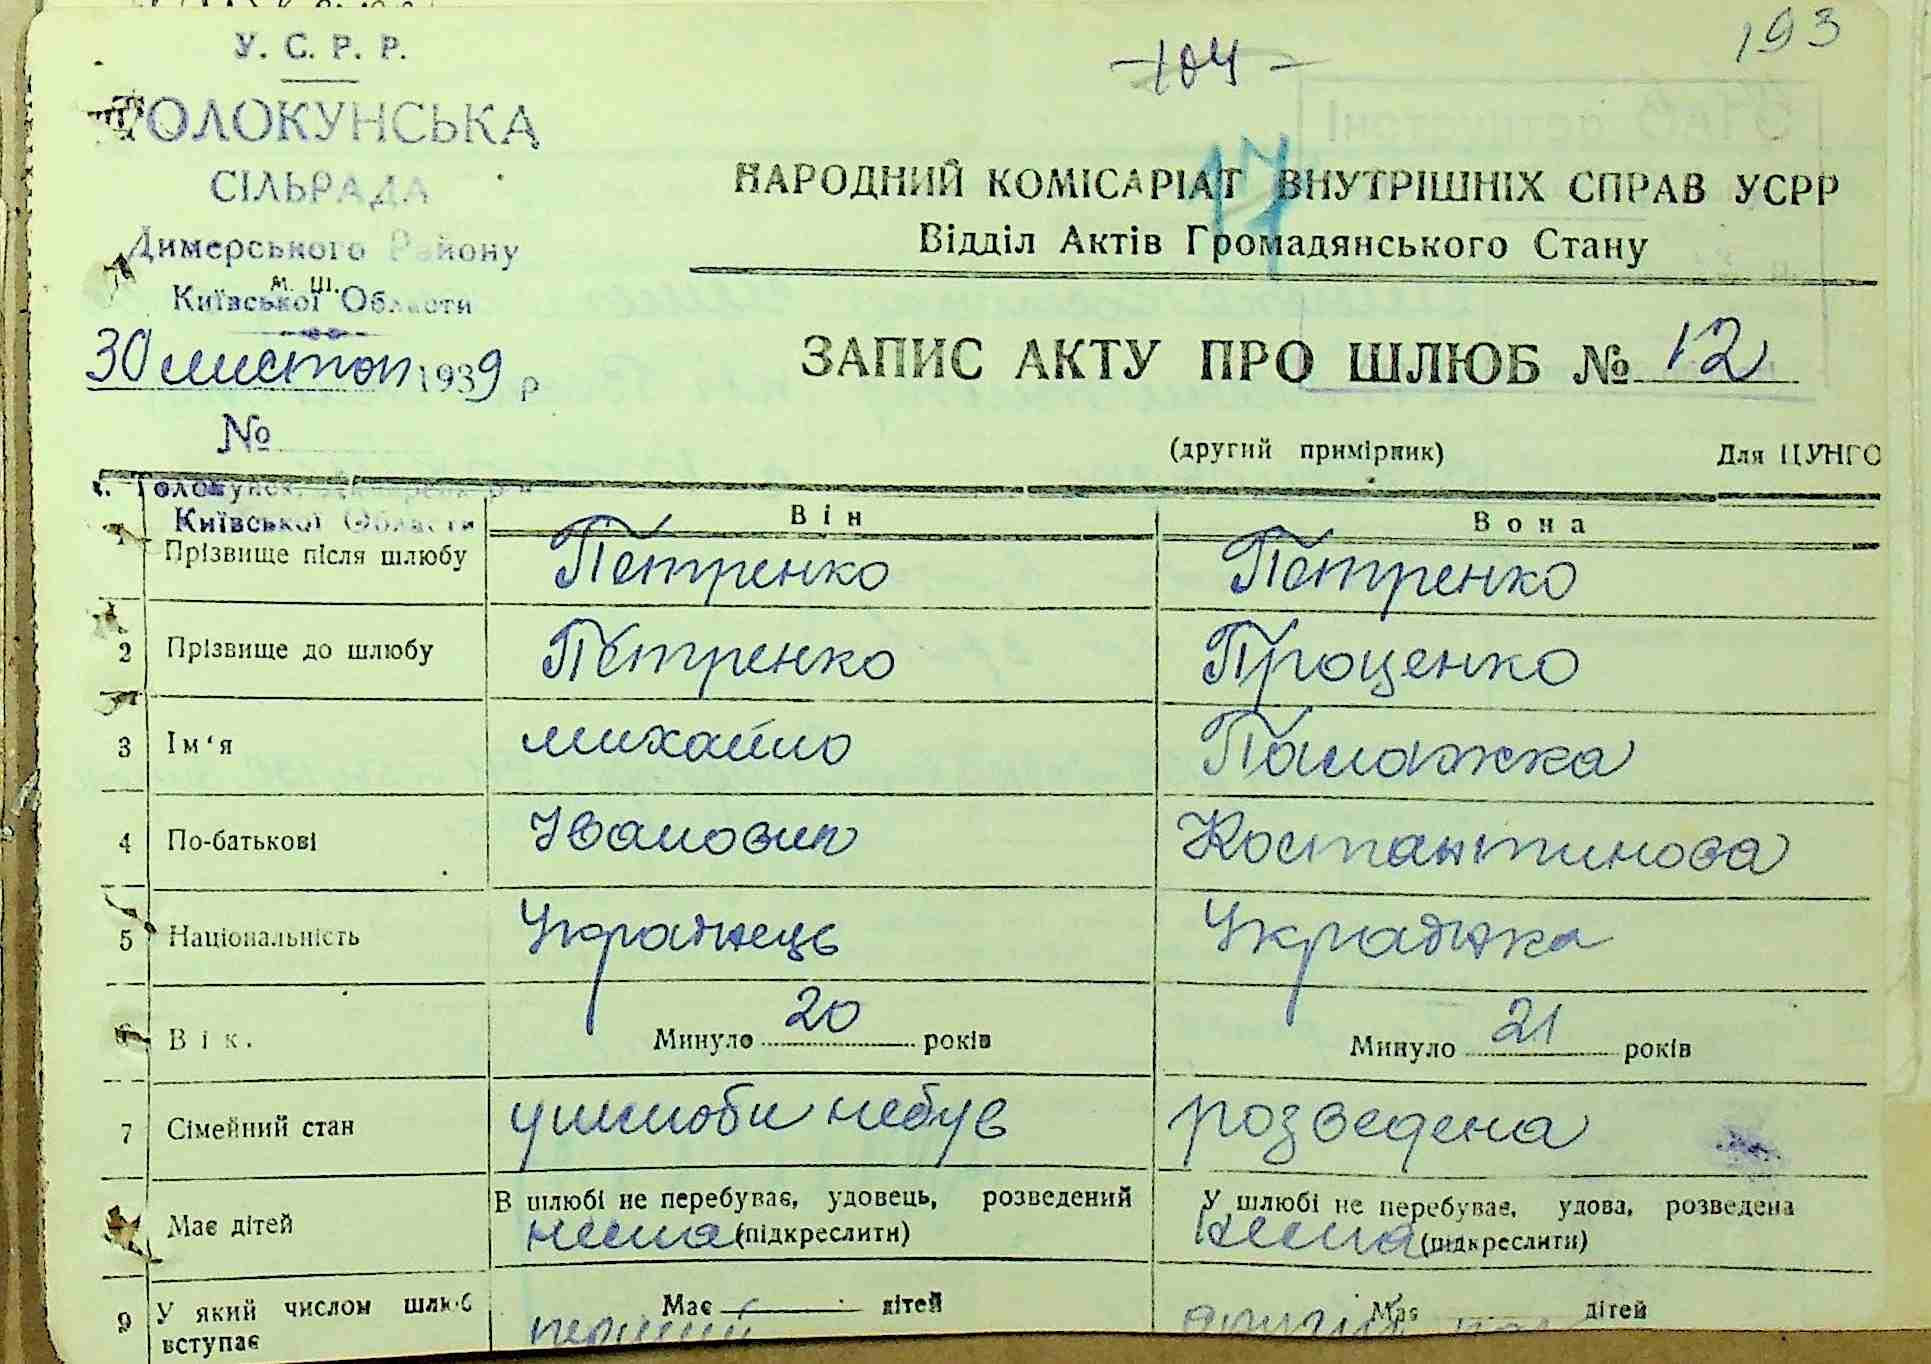 193
104
У. С. Р. Р.
ТОЛОКУНСЬКА
СІЛЬРАДА
Димерського Району
м. ш.
Київської Области
30 листоп 1939 р
№
17
НАРОДНИЙ КОМІСАРІАТ ВНУТРІШНІХ СПРАВ УСРР
Відділ Актів Громадянського Стану
ЗАПИС АКТУ ПРО ШЛЮБ № 12
(другий примірник) Для ЦУНГО
Київської Области
Він Вона
1 Прізвище після шлюбу Петренко Петренко
2 Прізвище до шлюбу Петренко Проценко
3 Ім'я михайло Палажка
4 По-батькові Іванович Костантинова
5 Національність Українець Українка
6 Вік. Минуло 20 років Минуло 21 років
7 Сімейний стан ушлюби небув розведена
В шлюбі не перебуває, удовець, розведений У шлюбі не перебуває, удова, розведена
Має дітей нема (підкреслити) нема (підкреслити)
Має дітей Має дітей
9 У який числом шлюб вступає перший